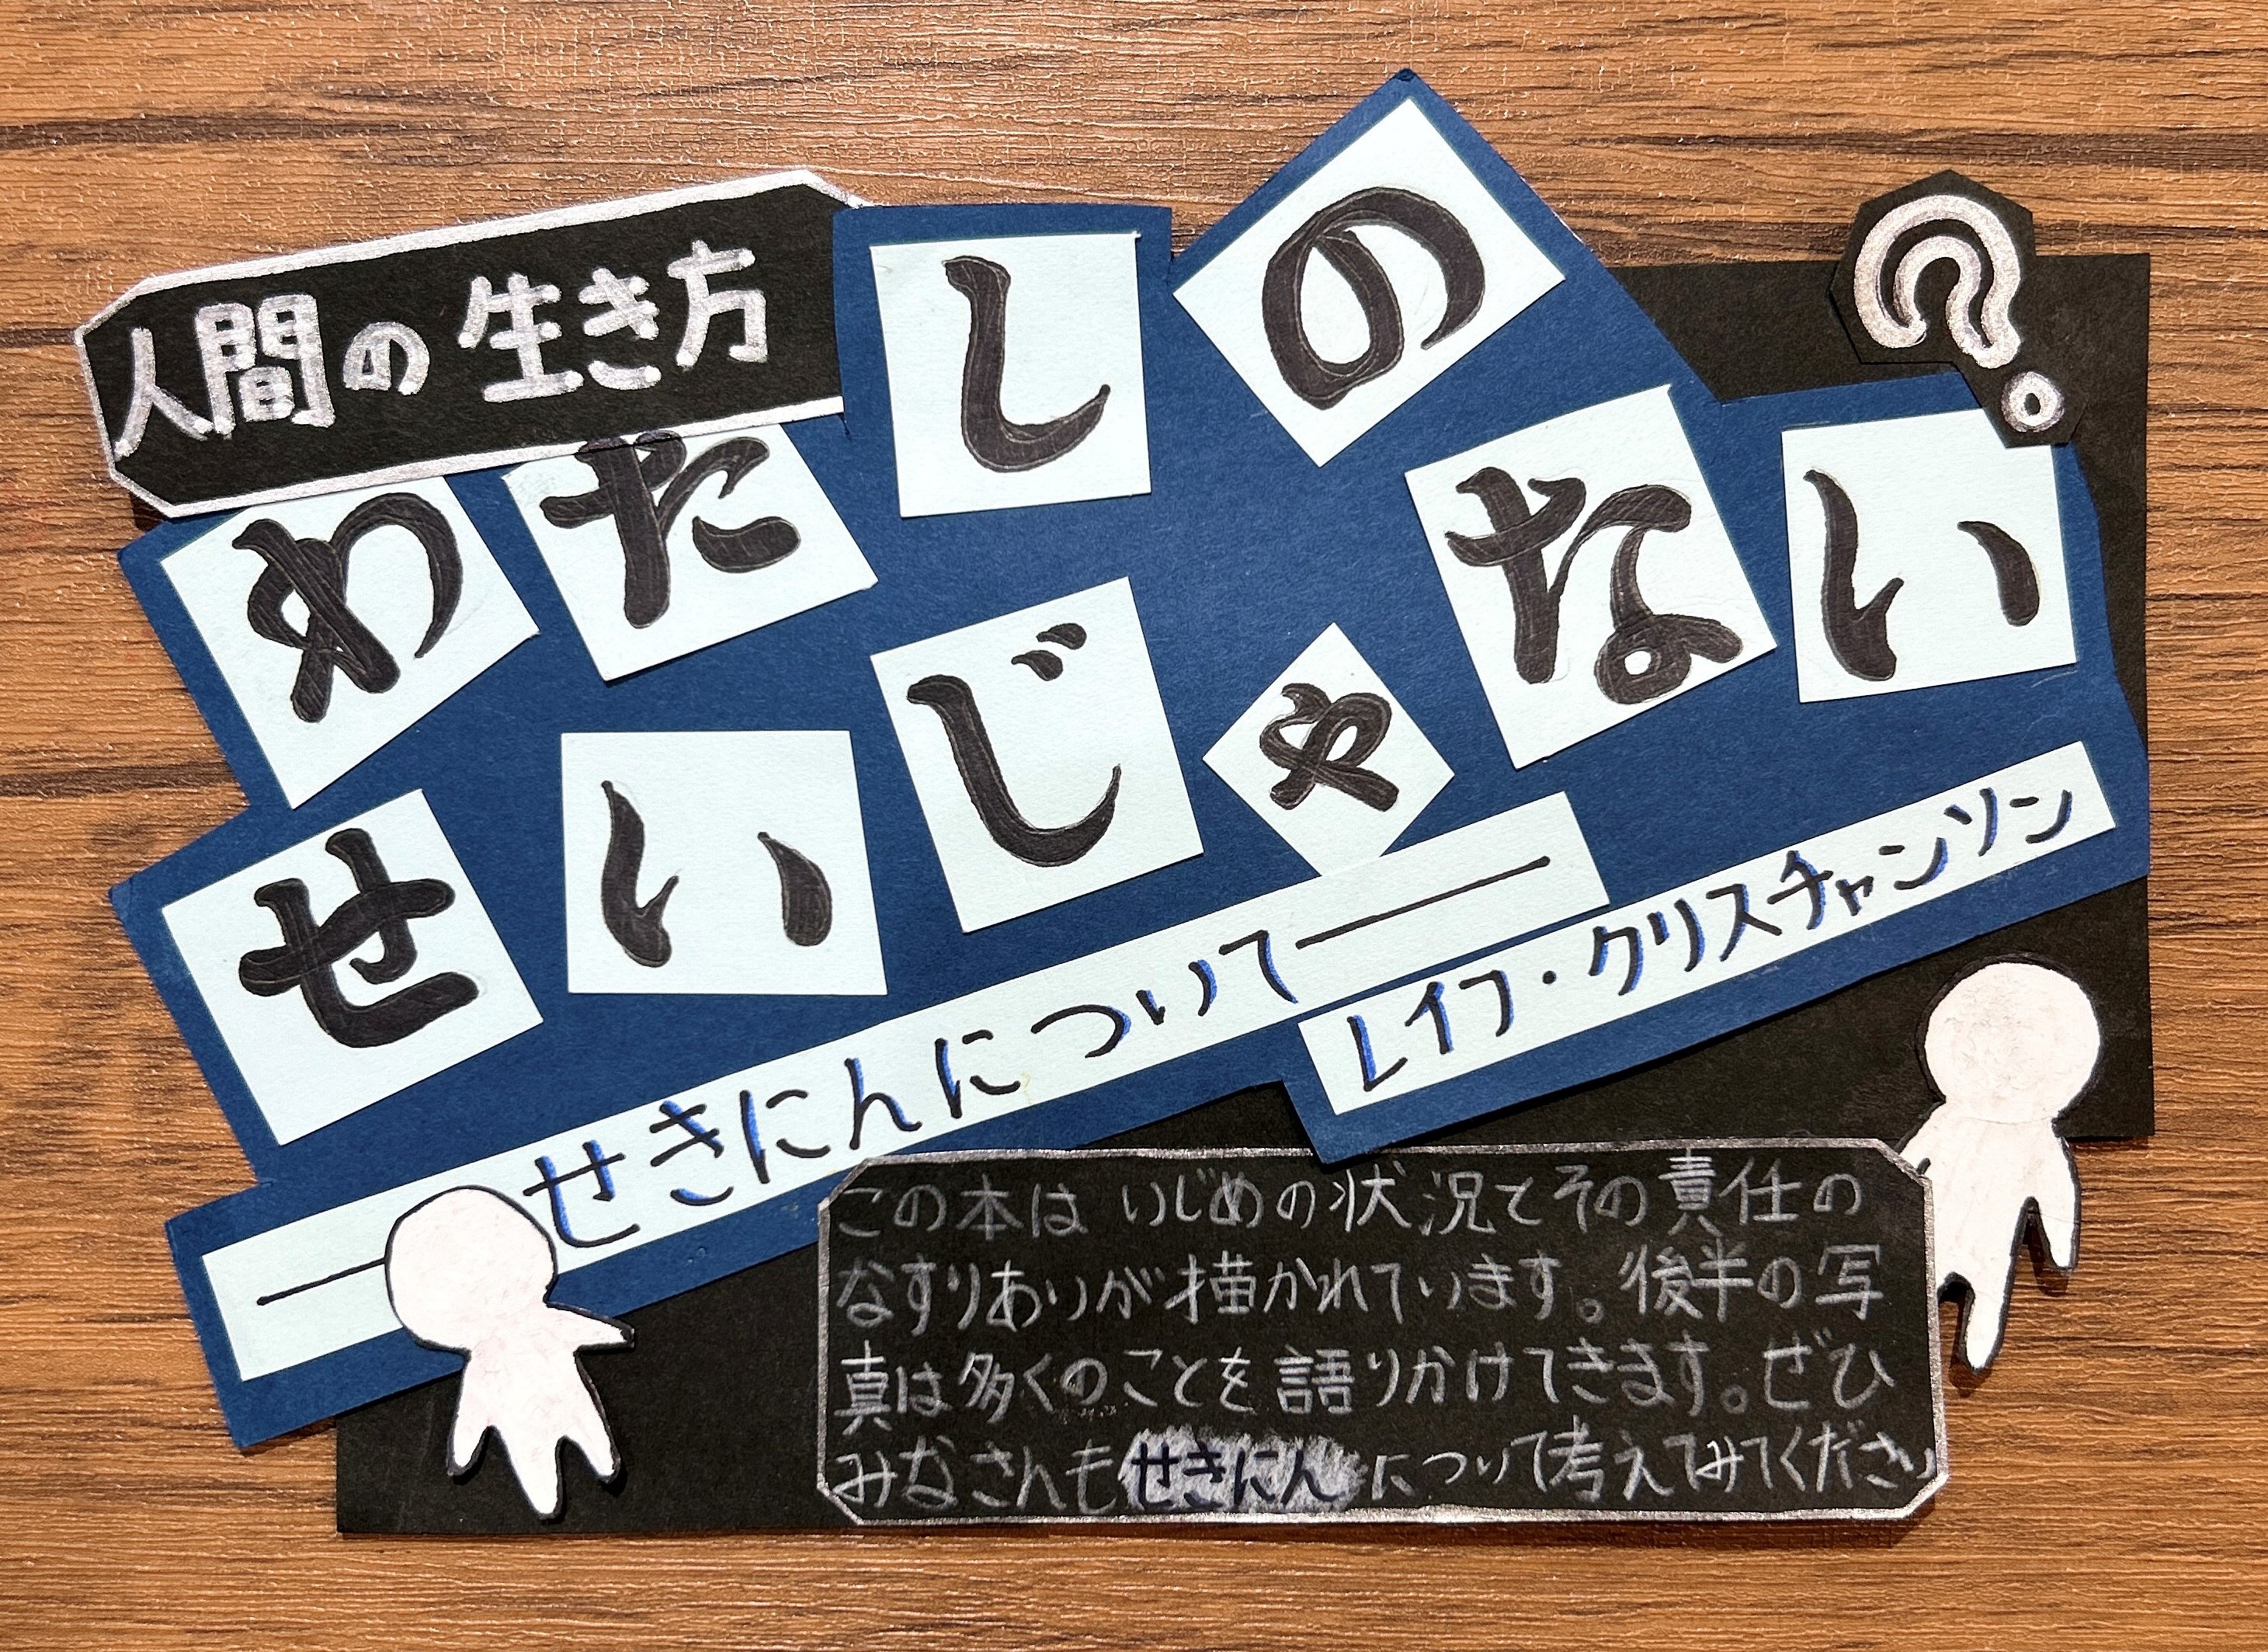 人間の生き方
わたしの
せいじゃない
?
―せきにんについて―
レイフ・クリスチャンソン
この本は いじめの状況とその責任の
なすりあいが描かれています。後半の写
真は多くのことを語りかけてきます。ぜひ
みなさんもせきにんについて考えてみてください